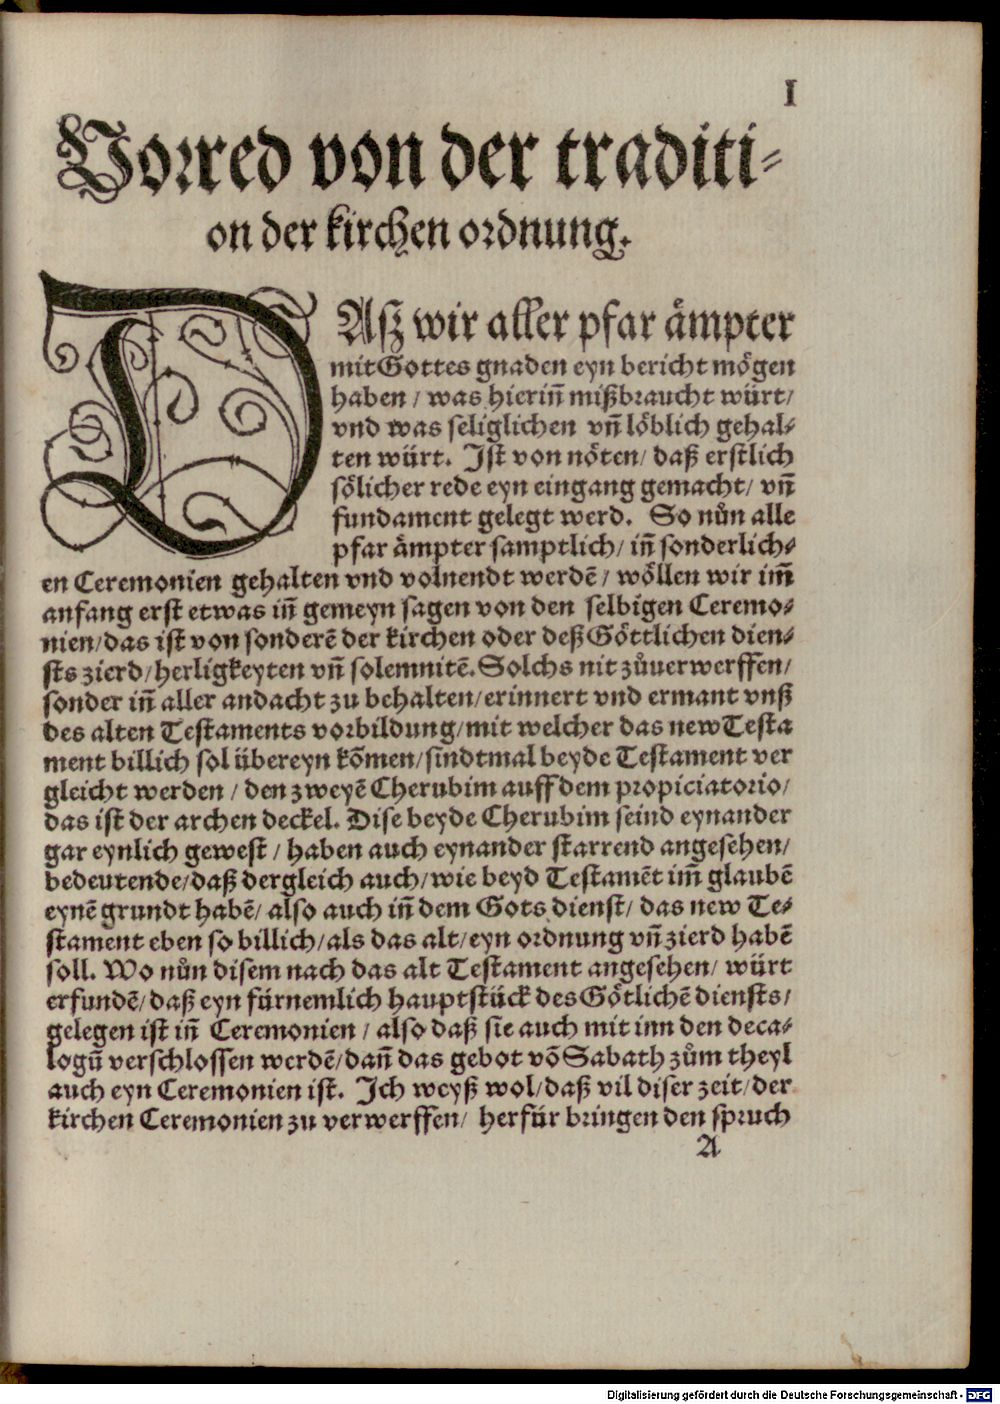 I
Vorred von der traditi-
on der kirchen ordnung.
DAsz wir aller pfar aͤmpter
mit Gottes gnaden eyn bericht moͤgen
haben / was hierin̄ mißbraucht wuͤrt/
vnd was seliglichen vn̄ loͤblich gehal-
ten wuͤrt. Ist von noͤten/ daß erstlich
soͤlicher rede eyn eingang gemacht/ vn̄
fundament gelegt werd. So nuͦn alle
pfar aͤmpter samptlich/ in̄ sonderlich-
en Ceremonien gehalten vnd volnendt werdē/ woͤllen wir im̄
anfang erst etwas in̄ gemeyn sagen von den selbigen Ceremo-
nien/das ist von sonderē der kirchen oder deß Goͤttlichen dien-
sts zierd/herligkeyten vn̄ solemnitē. Solchs nit zuͦuerwerffen/
sonder in̄ aller andacht zu behalten/erinnert vnd ermant vnß
des alten Testaments vorbildung/mit welcher das new Testa
ment billich sol uͤbereyn kōmen/sindtmal beyde Testament ver
gleicht werden / den zweyē Cherubim auff dem propiciatorio/
das ist der archen deckel. Dise beyde Cherubim seind eynander
gar eynlich gewest / haben auch eynander starrend angesehen/
bedeutende/daß dergleich auch/wie beyd Testamēt im̄ glaubē
eynē grundt habē/ also auch in̄ dem Gots dienst/ das new Te-
stament eben so billich/als das alt/eyn ordnung vn̄ zierd habē
soll. Wo nuͦn disem nach das alt Testament angesehen/ wuͤrt
erfundē/daß eyn fuͤrnemlich hauptstuͤck des Goͤtlichē diensts/
gelegen ist in̄ Ceremonien / also daß sie auch mit inn den deca-
logū verschlossen werdē/dan̄ das gebot vō Sabath zuͦm theyl
auch eyn Ceremonien ist. Ich weyß wol/daß vil diser zeit/der
kirchen Ceremonien zu verwerffen/ herfuͤr bringen den spruch
A
Digitalisierung gefördert durch die Deutsche Forschungsgemeinschaft - DFG